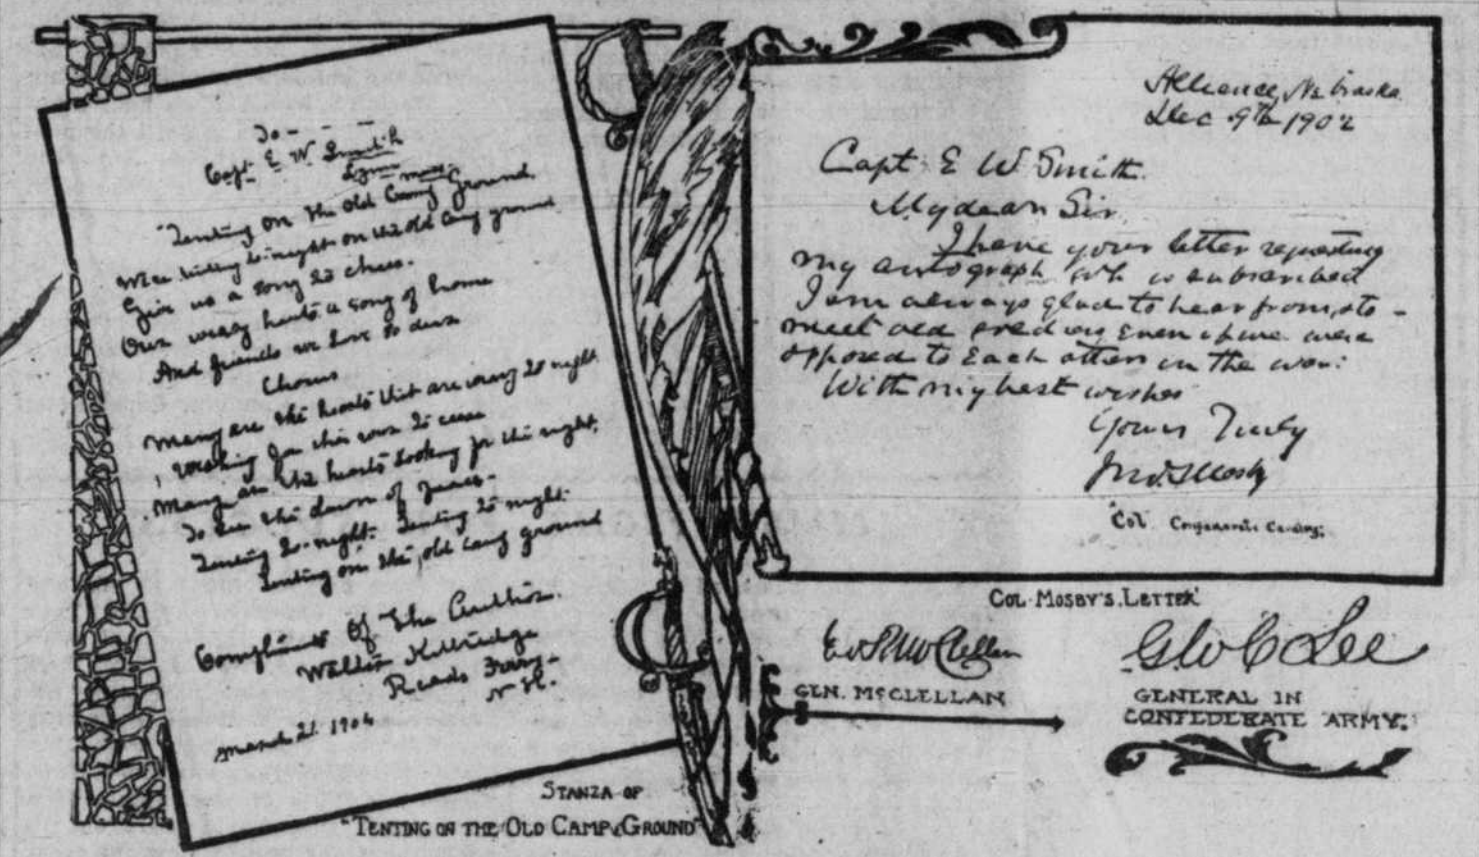 To -
Capt. E W. Smith
Lynn mass
"Tenting on the Old Camp Ground
Were tenting to-night on the old camp ground
Give us a song to cheer.
Our weary hearts a song of home
And friends we love so dear
Chorus
Many are the hearts that are weary to night
Wishing for the war to cease
Many are the hearts looking for the right,
To see the dawn of peace.
Tenting to-night. Tenting to night.
Tenting on the old camp ground
Compliments Of The Author.
Walter Kittredge
Reeds Ferry-
N. H.
March 21. 1904
STANZA OF
"TENTING ON THE OLD CAMP GROUND"
Alliance, Nebraska
Dec 9th 1902
Capt E W Smith.
My dear Sir
I have your letter requesting
my autograph wh. is subscribed
I am always glad to hear from, & to -
meet old even if we were
opposed to each other in the war:
With my best wishes
Yours Truly
Jno. S. Mosby
"Col Confederate Cavalry.
COL. MOSBY'S. LETTER
Geo B McClellan
GEN. McCLELLAN
G W C Lee
GENERAL IN
CONFEDERATE ARMY.